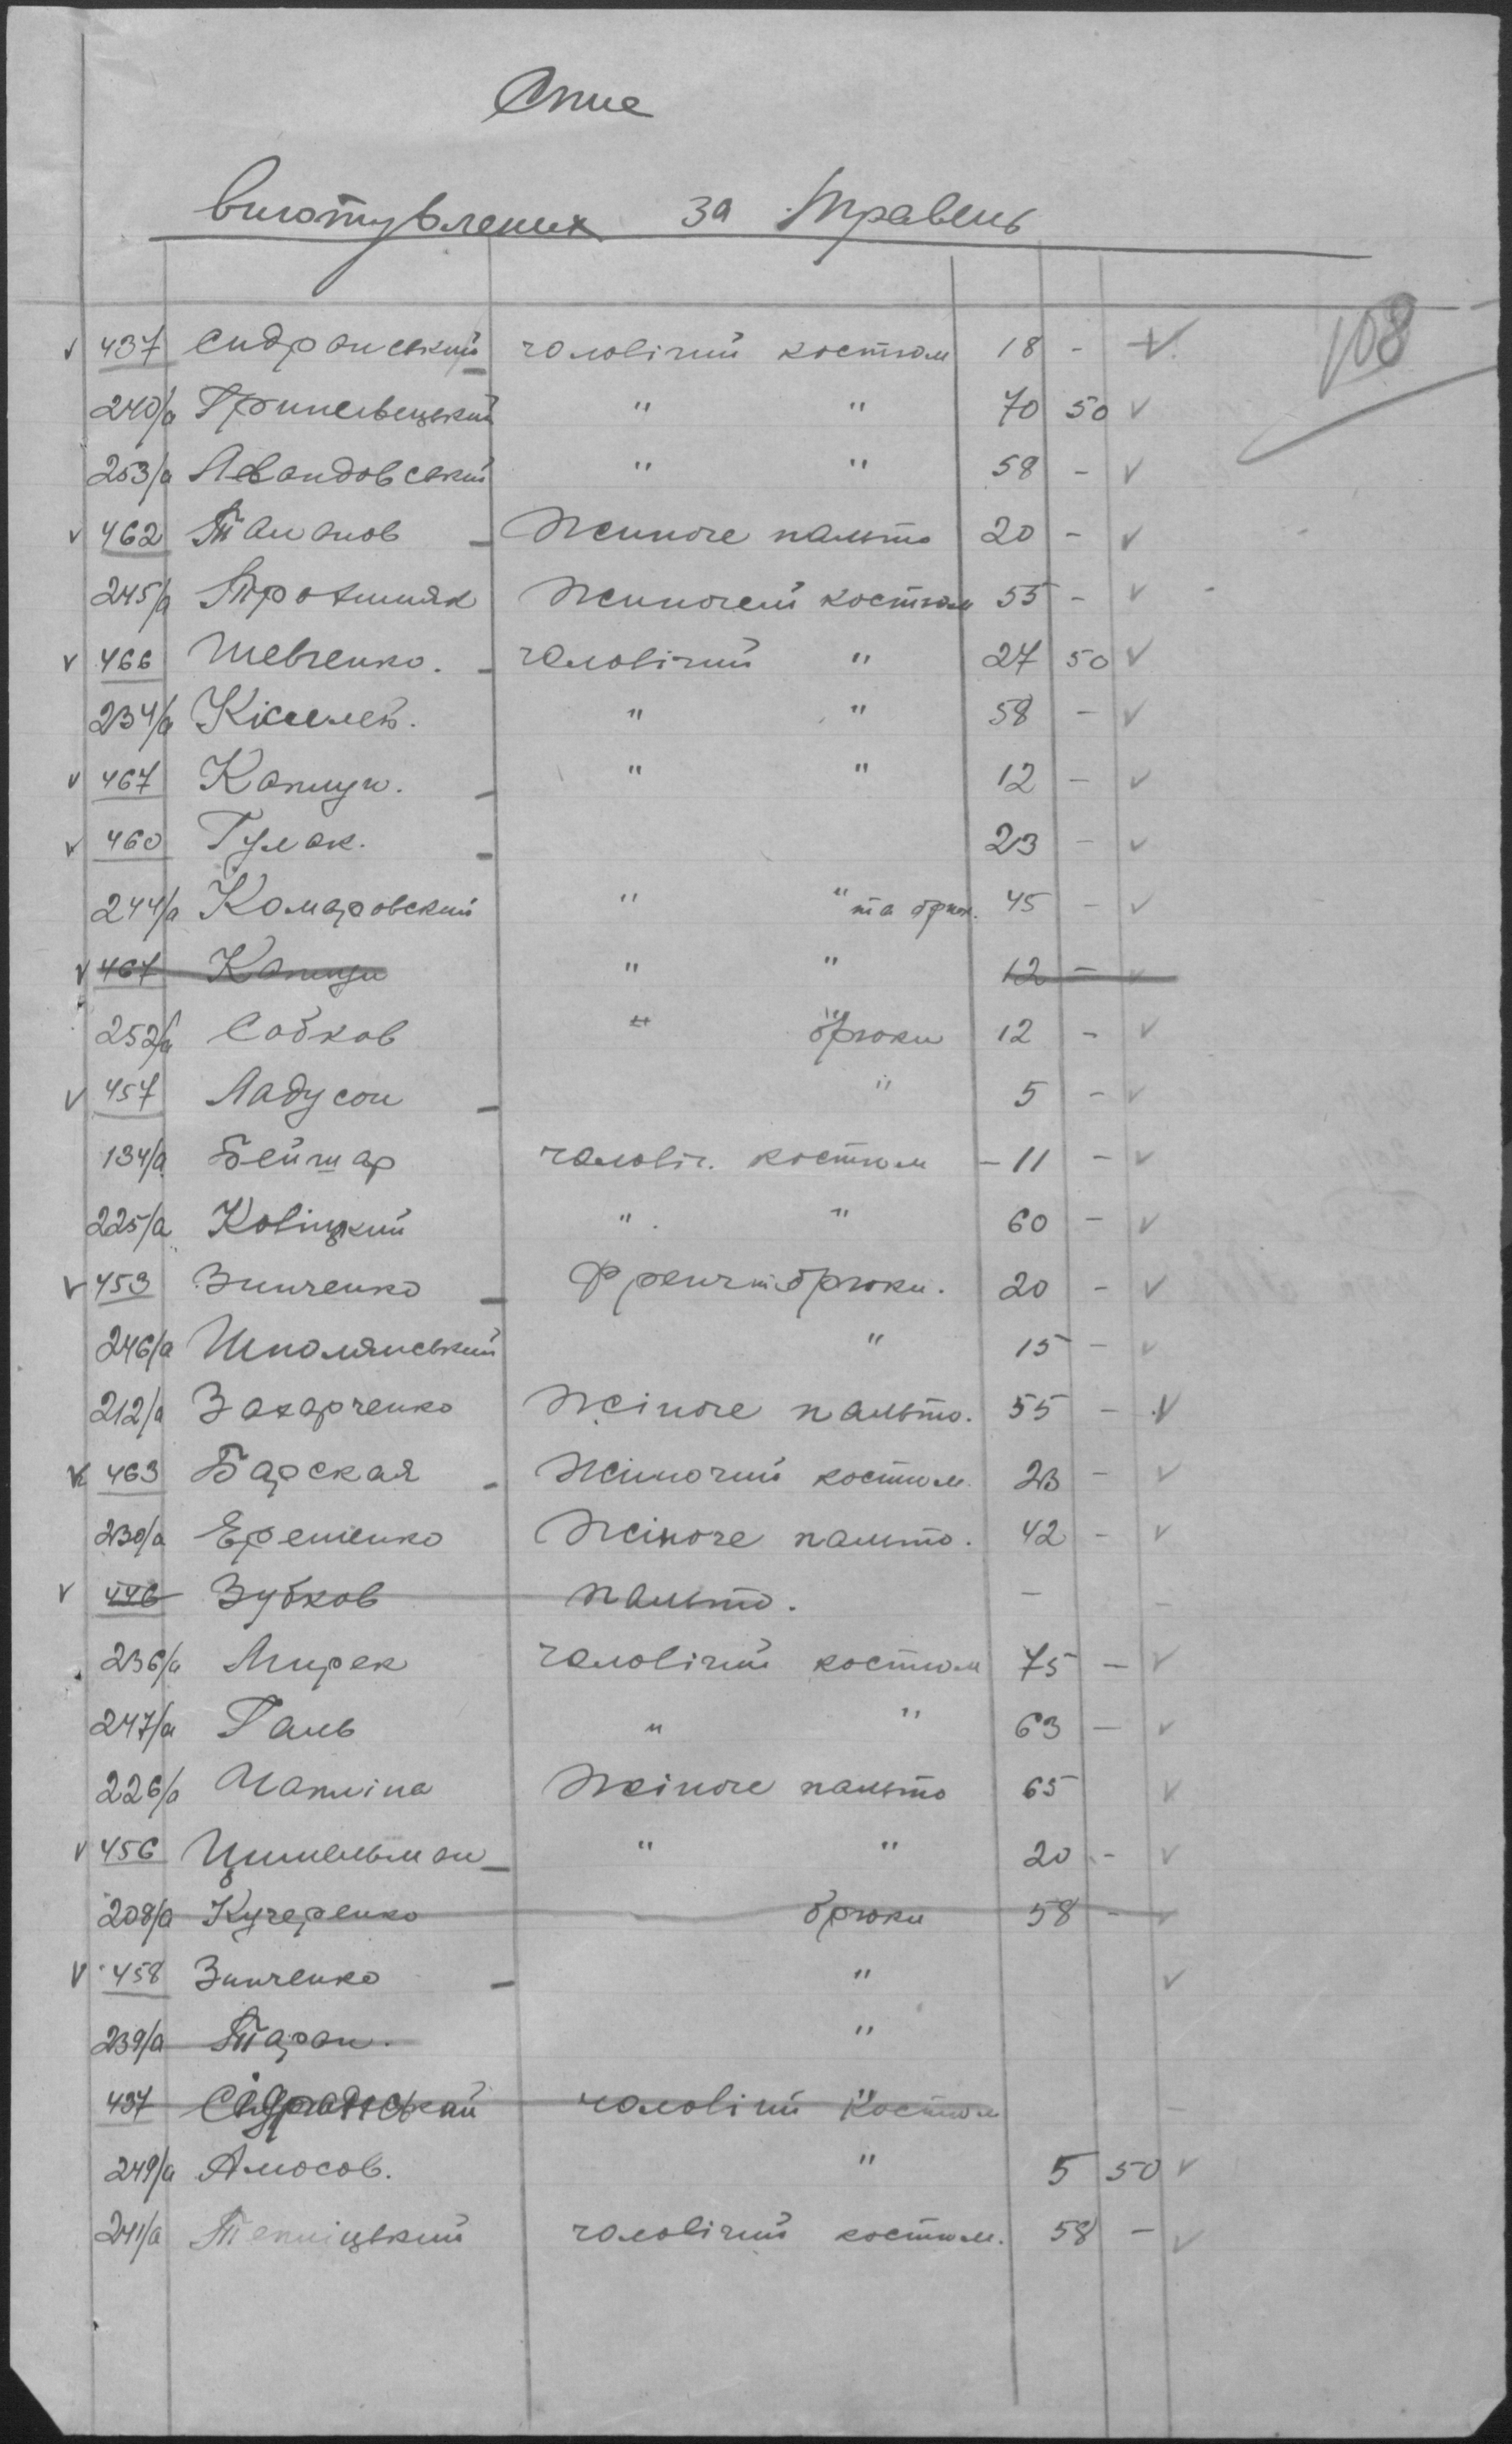 Опис
виготувлених за Травень
108
v 437 Сидранський чоловічий костюм 18 - v
240/а Гриневецький " " 70 50 v
253/а Левандовський " " 58 - v
v 462 Таманов - Жиноче пальто 20 - v
245/а Трохимяк Жиночей костюм 55 - v
v 466 Шевченко. - чоловічий " 27 50 v
234/а Кісилев. " " 58 - v
v 467 Капщук. - " " 12 - v
v 460 Гулак. - 23 - v
244/а Комаровский " " та брюк. 45 - v
v 467 " " 12 - v
252/а Собков " брюки 12 - v
v 457 Ладусон - " 5 - v
134/а Бейтар чоловіч. костюм - 11 - v
225/а Ковіцкий " " 60 - v
v 453 Зинченко - Френч т брюки. 20 - v
246/а Шполянський " 15 - v
212/а Захарченко Жіноче пальто. 55 - v
v 463 Барская - Жіночий костюм. 23 - v
230/а Еременко Жіноче пальто. 42 - v
v 446 Зубков пальто. - -
236/а Мирек чоловічий костюм 75 - v
247/а Галь " " 63 - v
226/а Чапліна Жіноче пальто 65 v
v 456 Цимельман - " " 20 - v
208/а Кучеренко брюки 58 - v
v 458 Зинченко - " v
239/а Таран. "
437 Сидранський чоловічий костюм -
249/а Амосов. " 5 50 v
241/а Тепліцький чоловічий костюм. 58 - v